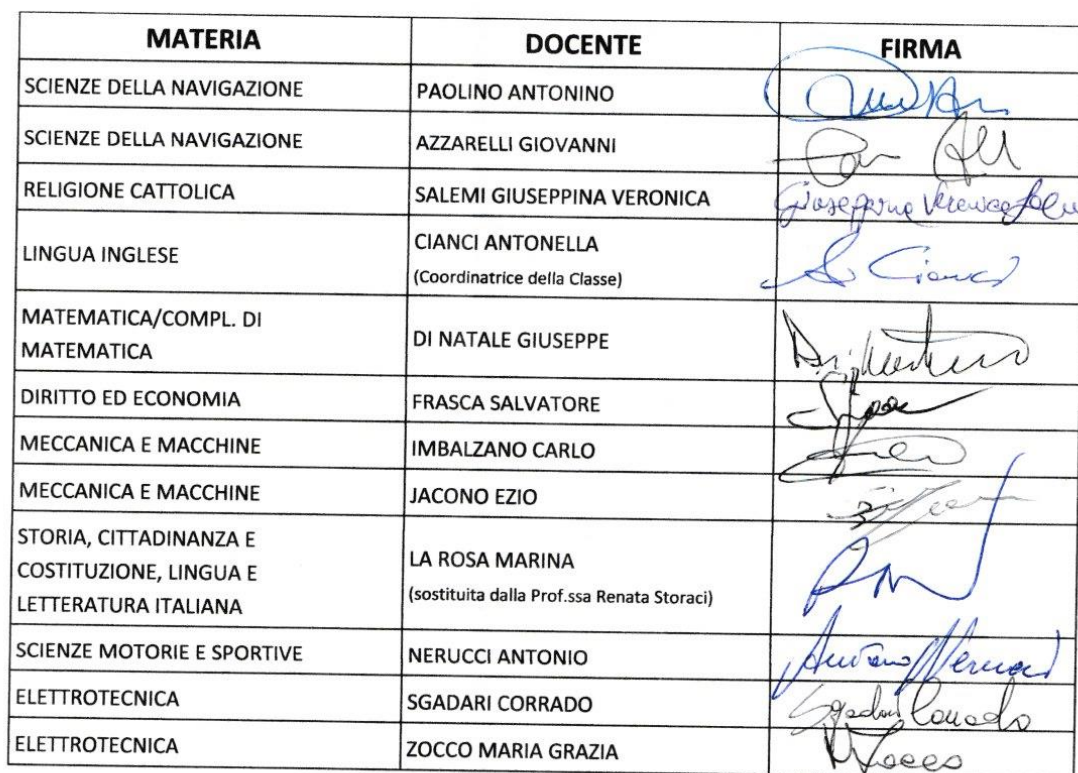 MATERIA DOCENTE FIRMA
SCIENZE DELLA NAVIGAZIONE PAOLINO ANTONINO
SCIENZE DELLA NAVIGAZIONE AZZARELLI GIOVANNI
RELIGIONE CATTOLICA SALEMI GIUSEPPINA VERONICA Giuseppina Veronica
LINGUA INGLESE CIANCI ANTONELLA Cianci
(Coordinatrice della Classe)
MATEMATICA/COMPL. DI
MATEMATICA DI NATALE GIUSEPPE
DIRITTO ED ECONOMIA FRASCA SALVATORE
MECCANICA E MACCHINE IMBALZANO CARLO
MECCANICA E MACCHINE JACONO EZIO
STORIA, CITTADINANZA E
COSTITUZIONE, LINGUA E
LETTERATURA ITALIANA LA ROSA MARINA
(sostituita dalla Prof.ssa Renata Storaci)
SCIENZE MOTORIE E SPORTIVE NERUCCI ANTONIO Antonio Nerucci
ELETTROTECNICA SGADARI CORRADO Sgadari Corrado
ELETTROTECNICA ZOCCO MARIA GRAZIA Zocco